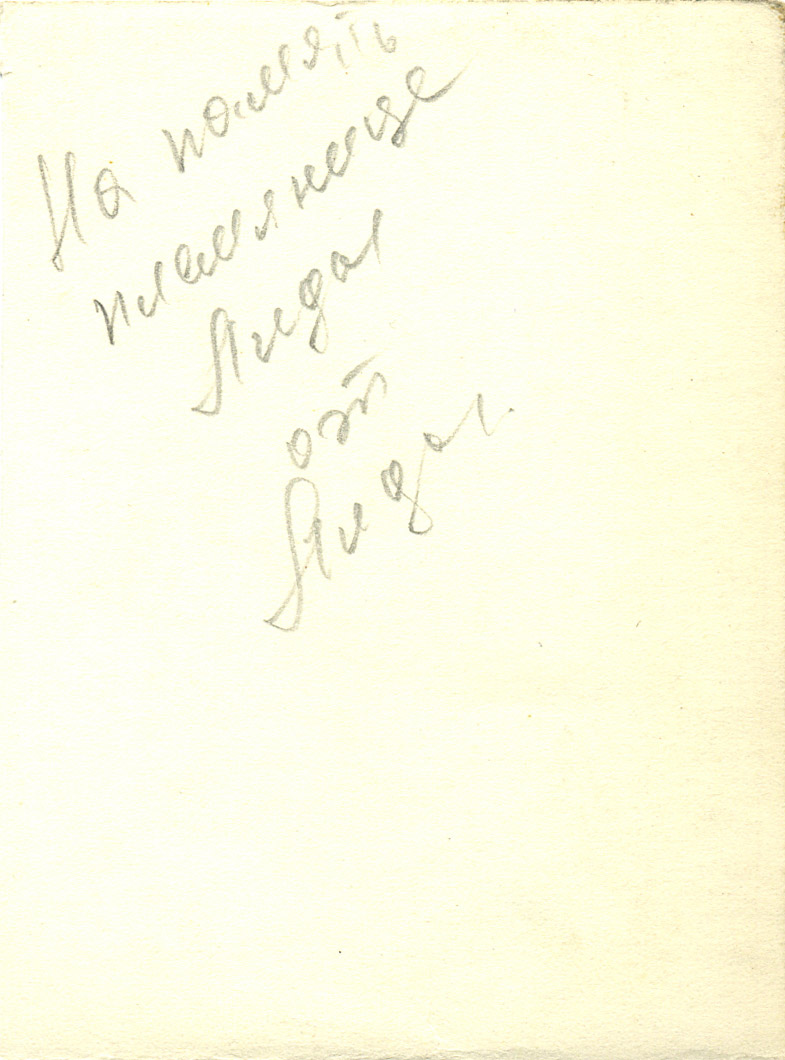 На память
племянице
Лида
от
Лида.